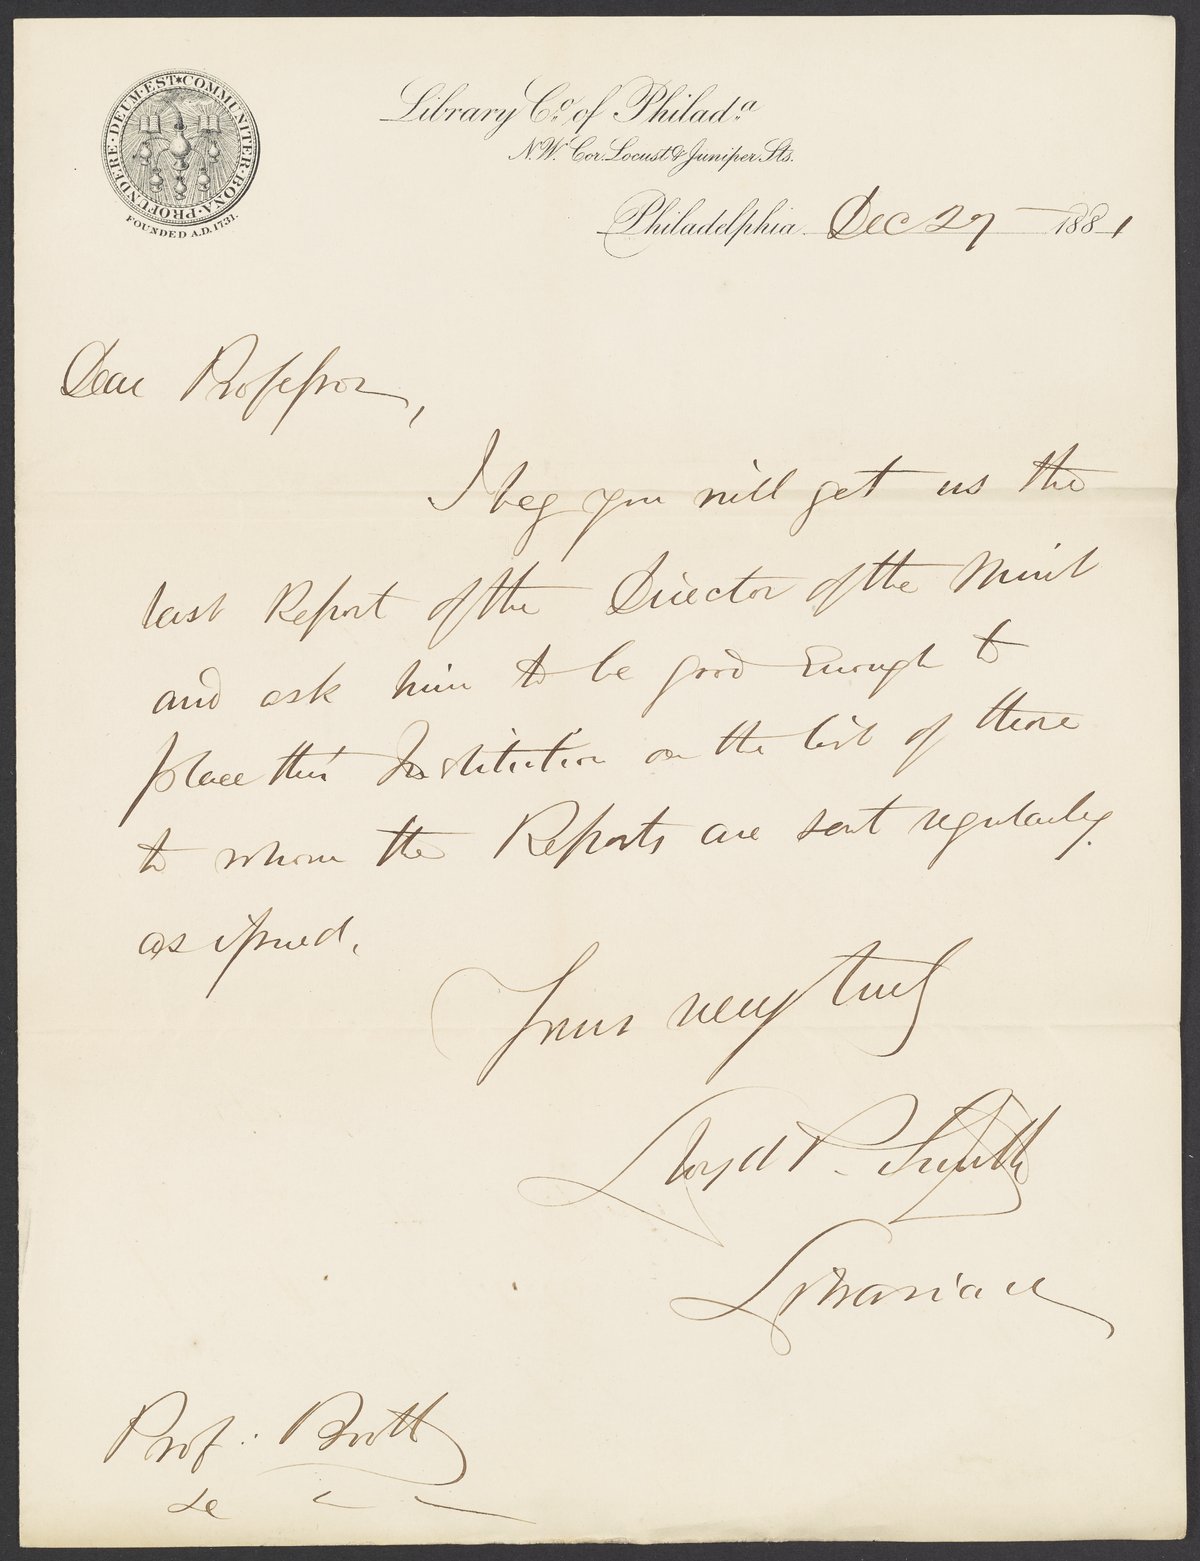 DEUM·EST★COMMUNITER·BONA·PROFUNDERE·
FOUNDED A.D. 1731.
Library Co. of Philada.
N.W. Cor. Locust & Juniper Sts.
Philadelphia Dec 27 — 1881
Dear Professor,
I beg you will get us the
last Report of the Director of the Mint
and ask him to be good enough to
place this Institution on the list of those
to whom the Reports are sent regularly
as issued.
Yours very truly
Lloyd P. Smith
Librarian
Prof: Booth